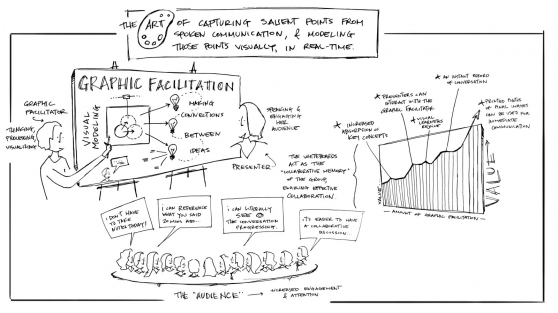 THE ART OF CAPTURING SALIENT POINTS FROM
SPOKEN COMMUNICATION, & MODELING
THOSE POINTS VISUALLY, IN REAL-TIME.
GRAPHIC FACILITATION
VISUAL
MODELING
MAKING
CONNECTIONS
BETWEEN
IDEAS
GRAPHIC
FACILITATOR
THINKING,
PROCESSING,
VISUALIZING
SPEAKING &
ENGAGING
HER
AUDIENCE
PRESENTER
THE WHITEBOARDS
ACT AS THE
"COLLABORATIVE MEMORY"
OF THE GROUP,
ENABLING EFFECTIVE
COLLABORATION.
INCREASED
ABSORPTION OF
KEY CONCEPTS
PRESENTERS CAN
INTERACT WITH THE
GRAPHIC FACILITATOR
VISUAL
LEARNERS
REJOICE
AN INSTANT RECORD
OF CONVERSATION
PRINTED
OF FINAL IMAGES
CAN BE USED FOR
IMMEDIATE
COMMUNICATION
VALUE
VALUE
AMOUNT OF GRAPHIC FACILITATION
I DON'T HAVE
TO TAKE
NOTES TODAY!
I CAN REFERENCE
WHAT YOU SAID
20 MINS AGO...
I CAN LITERALLY
SEE
THE CONVERSATION
PROGRESSING.
IT'S EASIER TO HAVE
A COLLABORATIVE
DISCUSSION.
THE "AUDIENCE"
INCREASED ENGAGEMENT
& ATTENTION